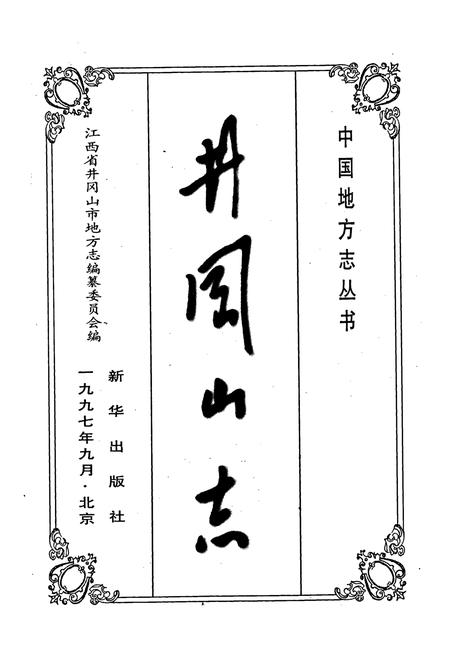 中国地方志丛书
井冈山志
江西省井冈山市地方志编纂委员会编
新华出版社
一九九七年九月·北京